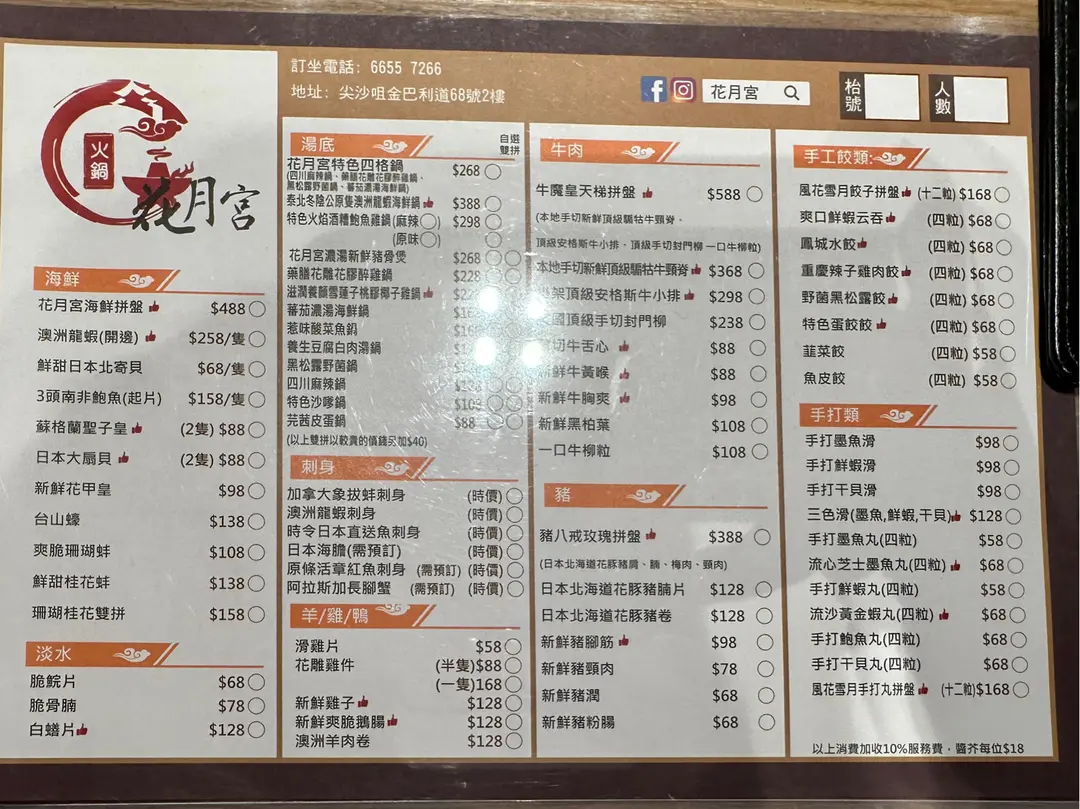 火鍋
花月宮
訂坐電話: 6655 7266
地址: 尖沙咀金巴利道68號2樓
花月宮
枱號
人數
海鮮
花月宮海鮮拼盤 $488
澳洲龍蝦(開邊) $258/隻
鮮甜日本北寄貝 $68/隻
3頭南非鮑魚(起片) $158/隻
蘇格蘭聖子皇 (2隻) $88
日本大扇貝 (2隻) $88
新鮮花甲皇 $98
台山蠔 $138
爽脆珊瑚蚌 $108
鮮甜桂花蚌 $138
珊瑚桂花雙拼 $158
淡水
脆鯇片 $68
脆骨腩 $78
白鱔片 $128
湯底
自選雙拼
花月宮特色四格鍋 $268
(四川麻辣鍋、藥膳花雕花膠醉雞鍋、
黑松露野菌鍋、蕃茄濃湯海鮮鍋)
泰北冬陰公原隻澳洲龍蝦海鮮鍋 $388
特色火焰酒糟鮑魚雞鍋(麻辣) $298
(原味)
花月宮濃湯新鮮豬骨煲 $268
藥膳花雕花膠醉雞鍋 $228
滋潤養顏雪蓮子桃膠椰子雞鍋
蕃茄濃湯海鮮鍋
惹味酸菜魚鍋
養生豆腐白肉湯鍋
黑松露野菌鍋
四川麻辣鍋
特色沙嗲鍋 $108
芫茜皮蛋鍋 $88
(以上雙拼以較貴的價錢另加$40)
刺身
加拿大象拔蚌刺身 (時價)
澳洲龍蝦刺身 (時價)
時令日本直送魚刺身 (時價)
日本海膽(需預訂) (時價)
原條活章紅魚刺身 (需預訂) (時價)
阿拉斯加長腳蟹 (需預訂) (時價)
羊/雞/鴨
滑雞片 $58
花雕雞件 (半隻)$88
(一隻)168
新鮮雞子 $128
新鮮爽脆鵝腸 $128
澳洲羊肉卷 $128
牛肉
牛魔皇天梯拼盤 $588
(本地手切新鮮頂級騸牯牛頸脊、
頂級安格斯牛小排、頂級手切封門柳 一口牛柳粒)
本地手切新鮮頂級騸牯牛頸脊 $368
架頂級安格斯牛小排 $298
國頂級手切封門柳 $238
切牛舌心 $88
鮮牛黃喉 $88
新鮮牛胸爽 $98
新鮮黑柏葉 $108
一口牛柳粒 $108
豬
豬八戒玫瑰拼盤 $388
(日本北海道花豚豬肩、腩、梅肉、頸肉)
日本北海道花豚豬腩片 $128
日本北海道花豚豬卷 $128
新鮮豬腳筋 $98
新鮮豬頸肉 $78
新鮮豬潤 $68
新鮮豬粉腸 $68
手工餃類:
風花雪月餃子拼盤 (十二粒) $168
爽口鮮蝦云吞 (四粒) $68
鳳城水餃 (四粒) $68
重慶辣子雞肉餃 (四粒) $68
野菌黑松露餃 (四粒) $68
特色蛋餃餃 (四粒) $68
韮菜餃 (四粒) $58
魚皮餃 (四粒) $58
手打類
手打墨魚滑 $98
手打鮮蝦滑 $98
手打干貝滑 $98
三色滑(墨魚,鮮蝦,干貝) $128
手打墨魚丸(四粒) $58
流心芝士墨魚丸(四粒) $68
手打鮮蝦丸(四粒) $58
流沙黃金蝦丸(四粒) $68
手打鮑魚丸(四粒) $68
手打干貝丸(四粒) $68
風花雪月手打丸拼盤 (十二粒)$168
以上消費加收10%服務費，醬芥每位$18